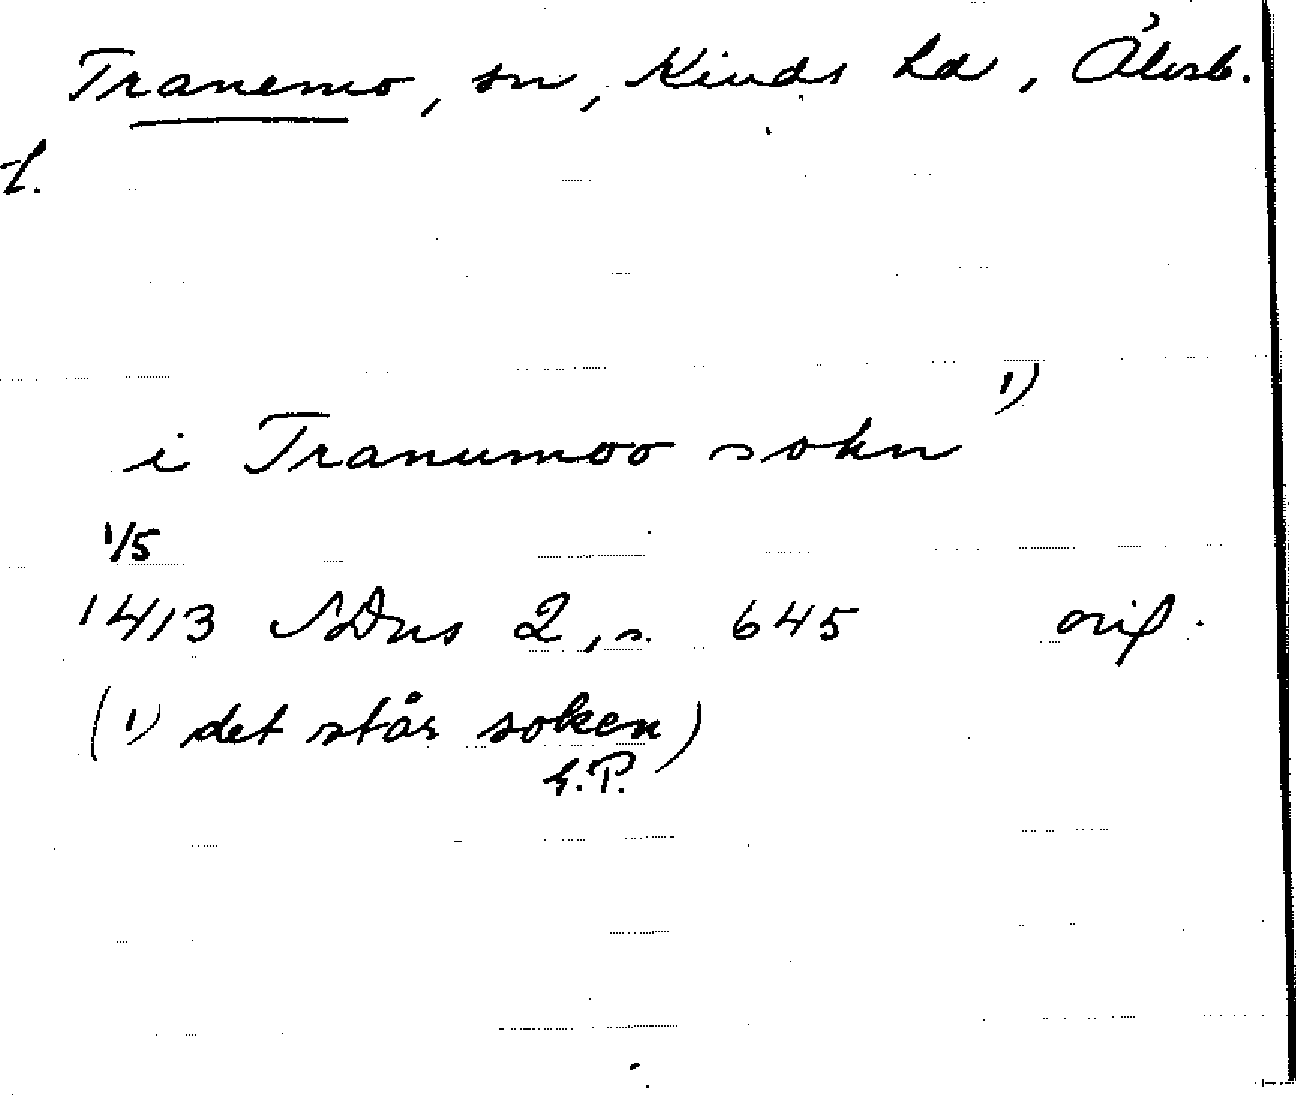 Tranemo, sn, Kinds hd, Älvsb.
l.
i Tranumoo sokn 1)
1/5
1413 SDns 2, s. 645 orig.
(1) det står soken)
G.P.